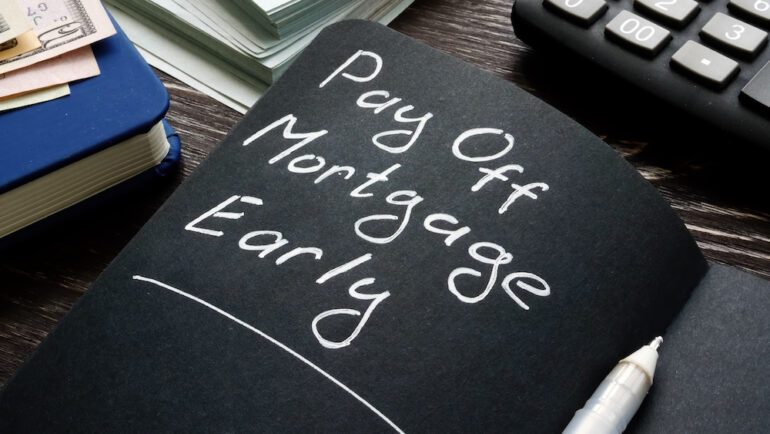 Pay Off
Mortgage
Early
00
2
3
6